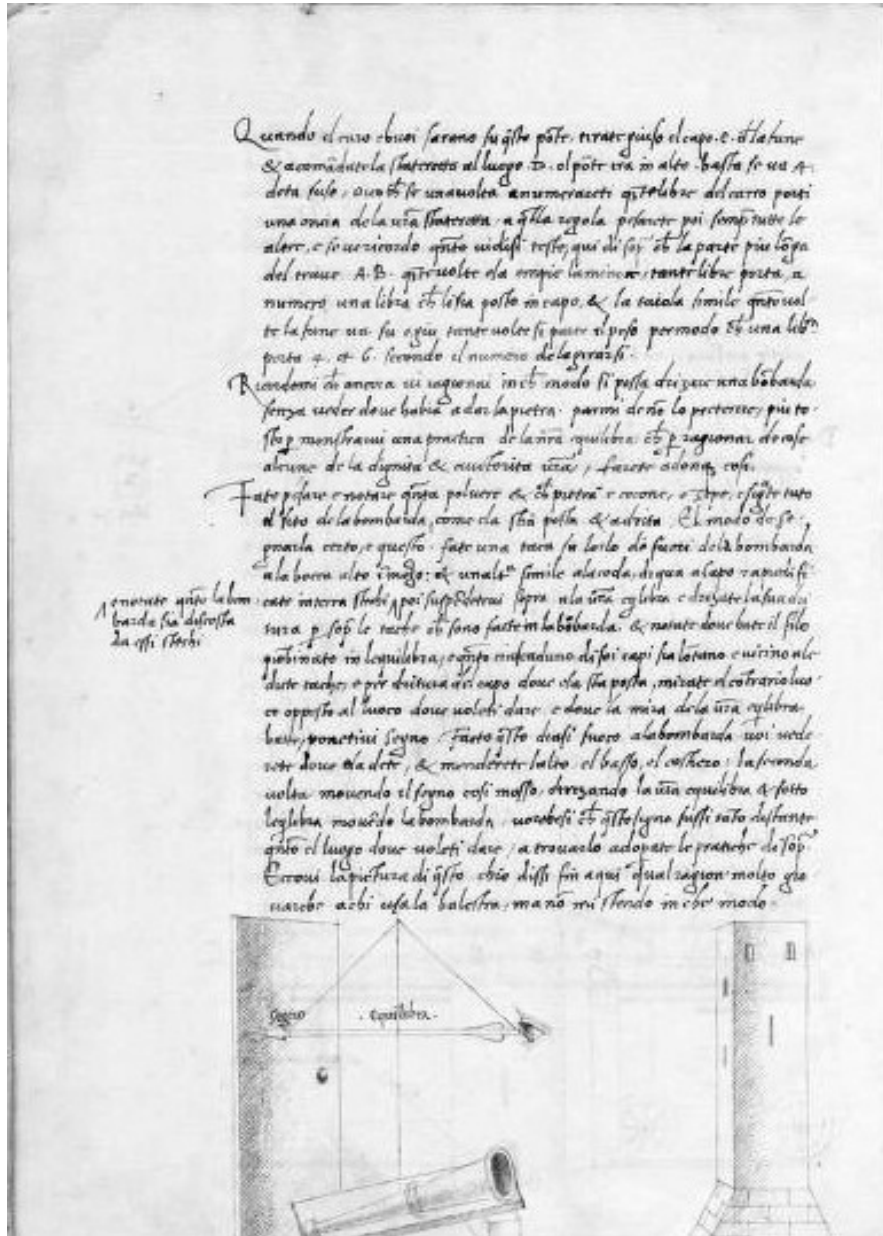 Quando el caro e buoi sarano su q̄sto pōte, tirate giuso el capo. C. d̄ la fune
& acomādate la stateretta al luogo D. el pōte ira in alto. basta se un 4.
deta suso, una volta anumerareti q̄nte libre del carro porti
una oncia de la vr̄a stateretta, a q̄lla regola pesarete poi semp̄ tutte le
altre, e se ve ricordo q̄nto vi dissi teste, qui di sop̄ ch̄ la parte piu lōga
del trave A.B. q̄nte volte ela empie la minore, tante libre porta, a
numero una libra ch̄ li sia posto in capo, & la taiola simile q̄nto vol-
te la fune va su e giu tante volte si parte il peso per modo ch̄ una libra
porta 4. et 6. secondo il numero de la girarsi.
ch̄ ancora vi ragionai in ch̄ modo si possa drizare una bōbarda
senza veder dove habia a dar la pietra. parmi de nō lo preterire, piu to-
sto p̱ monstrarvi una practica de la nr̄a equilibra ch̄ p̱ ragionar de cose
alcune de la dignita & auctorita vr̄a, farete adonq̄ cosi.
Fate pesare e notare q̄nta polvere & ch̄ pietra e cocone, e simile tuto
el sito de la bombarda, come ela sta posta & adrita. El modo de se-
gnarla certo, e questo. fate una taca su lorlo de fuori de la bombarda
a la bocca alto ī mezo: & unaltra simile ala coda, di qua a capo rapidifi-
cate in terra stechi ^ poi suspēdetevi sopra a la vr̄a eqlibra e drizate la sua dri-
tura p̱ sop̄ le tache ch̄ sono facte in la bōbarda. & notate dove bate il filo
piōbinato in lequilibra, e q̄nto ciaschuno di soi capi sia lōtano e vicino ale
dute tache, e per dritura del capo dove ela sta posta, mirate el cōtrario luo-
co opposto al luoco dove voleti dare e dove la mira de la vr̄a eqlibra
bate, ponetivi segno. Facto q̄sto diasi fuoco ala bombarda voi vede
rete dove ela dete, & menderete lalto, el basso, el costhero: la seconda
volta movendo il segno cosi mosso, drizando la vr̄a equilibra & sotto
leqlibra movēdo la bombarda, vorebesi ch̄ q̄sto segno fussi tāto distante
q̄nto el luogo dove voleti dare, a trovarlo adopate le pratiche di sop̄.
Eccovi la pictura di q̄sto chio dissi fin a qui qual ragion molto gio
varebe a chi usa la balestra, ma nō mi stendo in che modo.
^ e notate q̄nto la bom-
barda sia discosta
da essi stechi
Segno
. Equilibra .